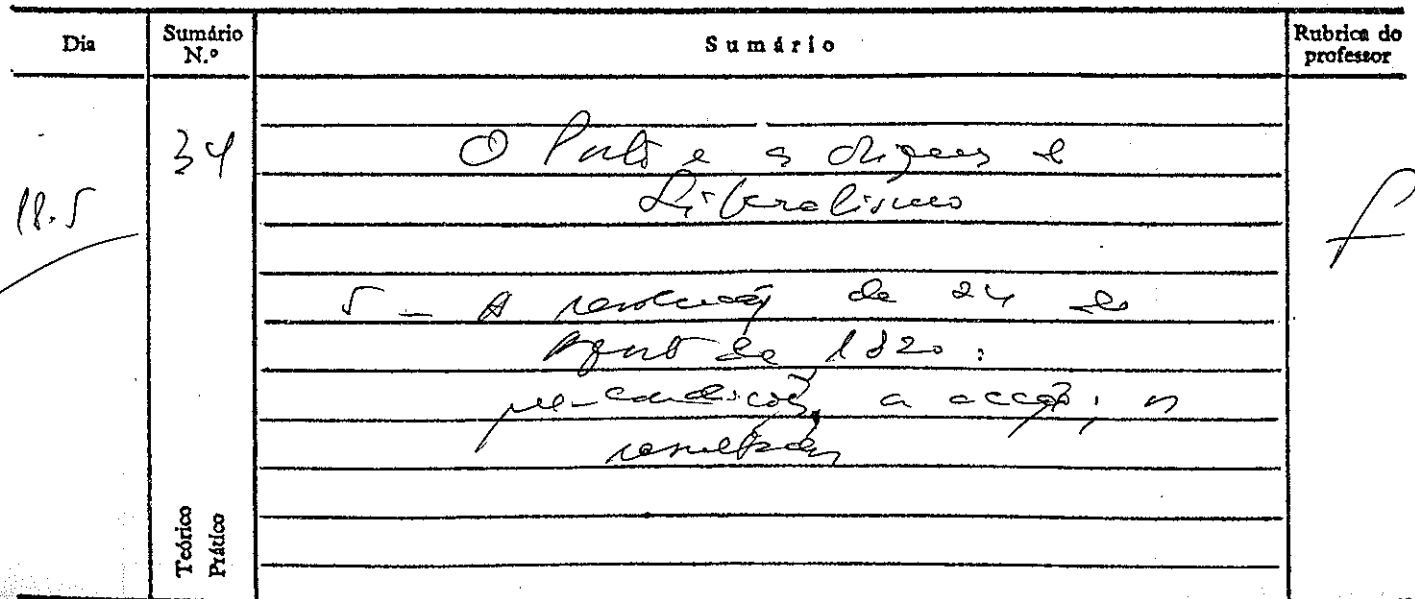 Dia
Sumário N.º
Sumário
Rubrica do professor
34
18.5
O Porto e as origens do
Liberalismo
5 - A revolução de 24 de
Agosto de 1820:
pré-condições, a acção; os
resultados
Teórico
Prático